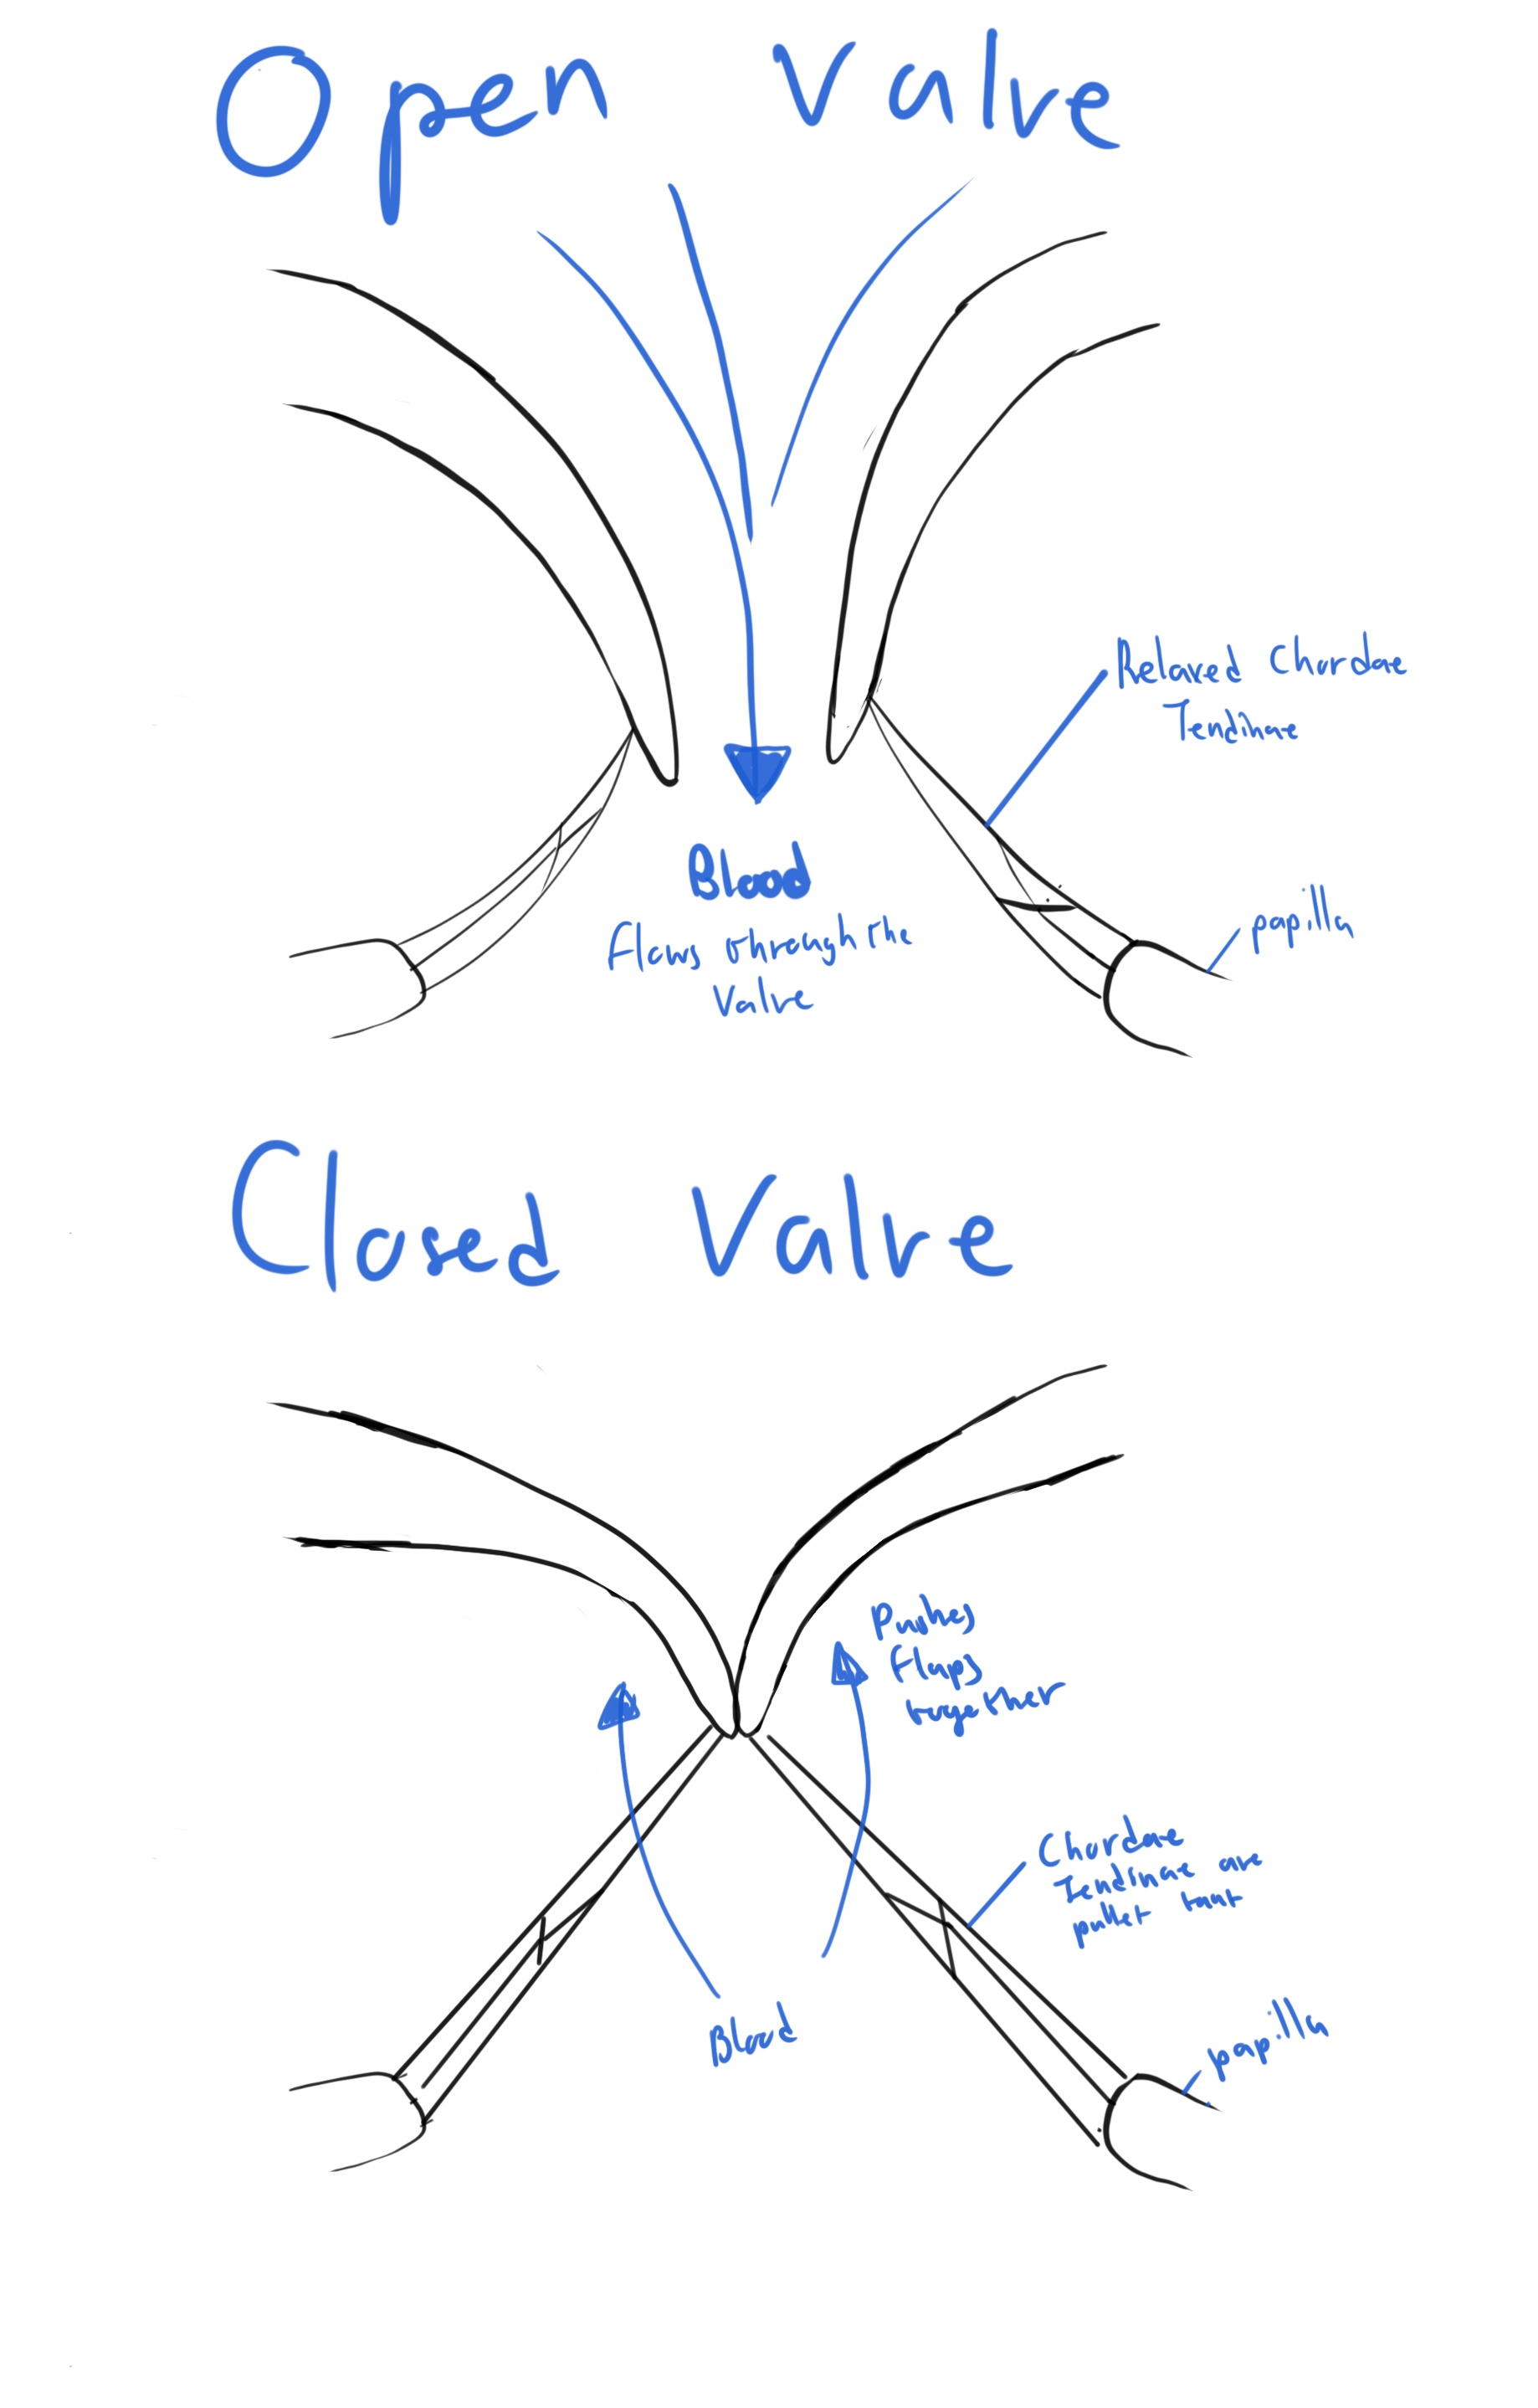 Open Valve
Relaxed Chordae
Tendinae
papilla
Blood
Flows through the
Valve
Closed Valve
Pushes
Flaps
together
Chordae
Tendinae are
pulled taut
papilla
Blood